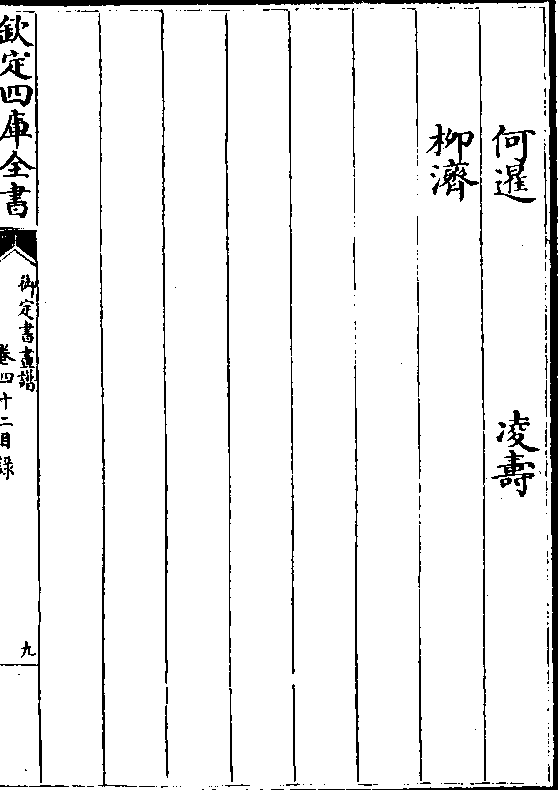 何暹 凌壽
柳濟
欽定四庫全書
御定書畫譜
卷四十二目録
九